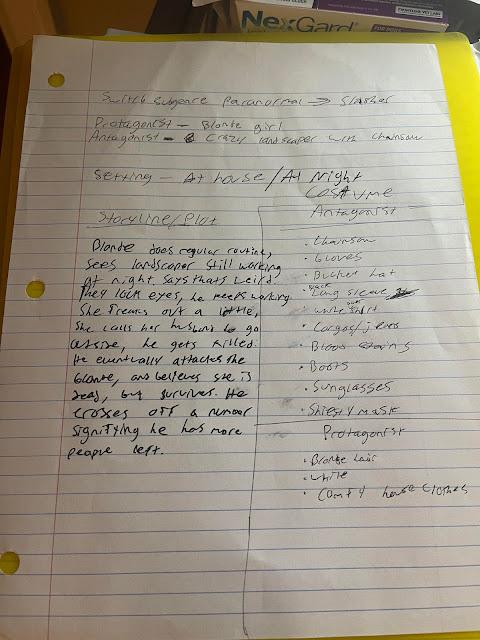 NexGard
FOR DOGS
Switch subgenre Paranormal → Slasher
Protagonist – Blonde girl
Antagonist – Crazy landscaper with chainsaw
Setting – At house / At Night
Storyline/Plot
Blonde does regular routine,
sees landscaper still working
at night, says thats weird.
They lock eyes, he keeps working.
She freaks out a little,
she calls her husband to go
outside, he gets killed.
He eventually attacks the
blonde, and believes she is
dead, but survives. He
crosses off a number
signifying he has more
people left.
Costume
Antagonist
• Chainsaw
• Gloves
• Bucket hat
• black Long sleeve
• white over shirt
• Cargos/jeans
• Blood stains
• Boots
• Sunglasses
• Shiesty mask
Protagonist
• Blonde hair
• white
• Comfy house clothes